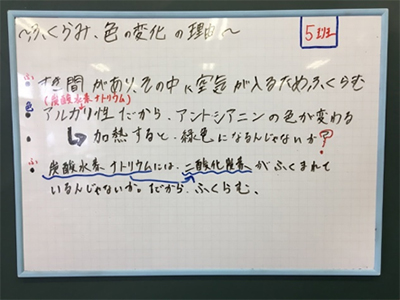 ～ふくらみ、色の変化の理由～
5班
ふ
・すき間があり、その中に空気が入るため、ふくらむ
(炭酸水素ナトリウム)
色
・アルカリ性だから、アントシアニンの色が変わる
↳加熱すると、緑色になるんじゃないか？
ふ
・炭酸水素ナトリウムには、二酸化炭素がふくまれて
いるんじゃないか。だから、ふくらむ、